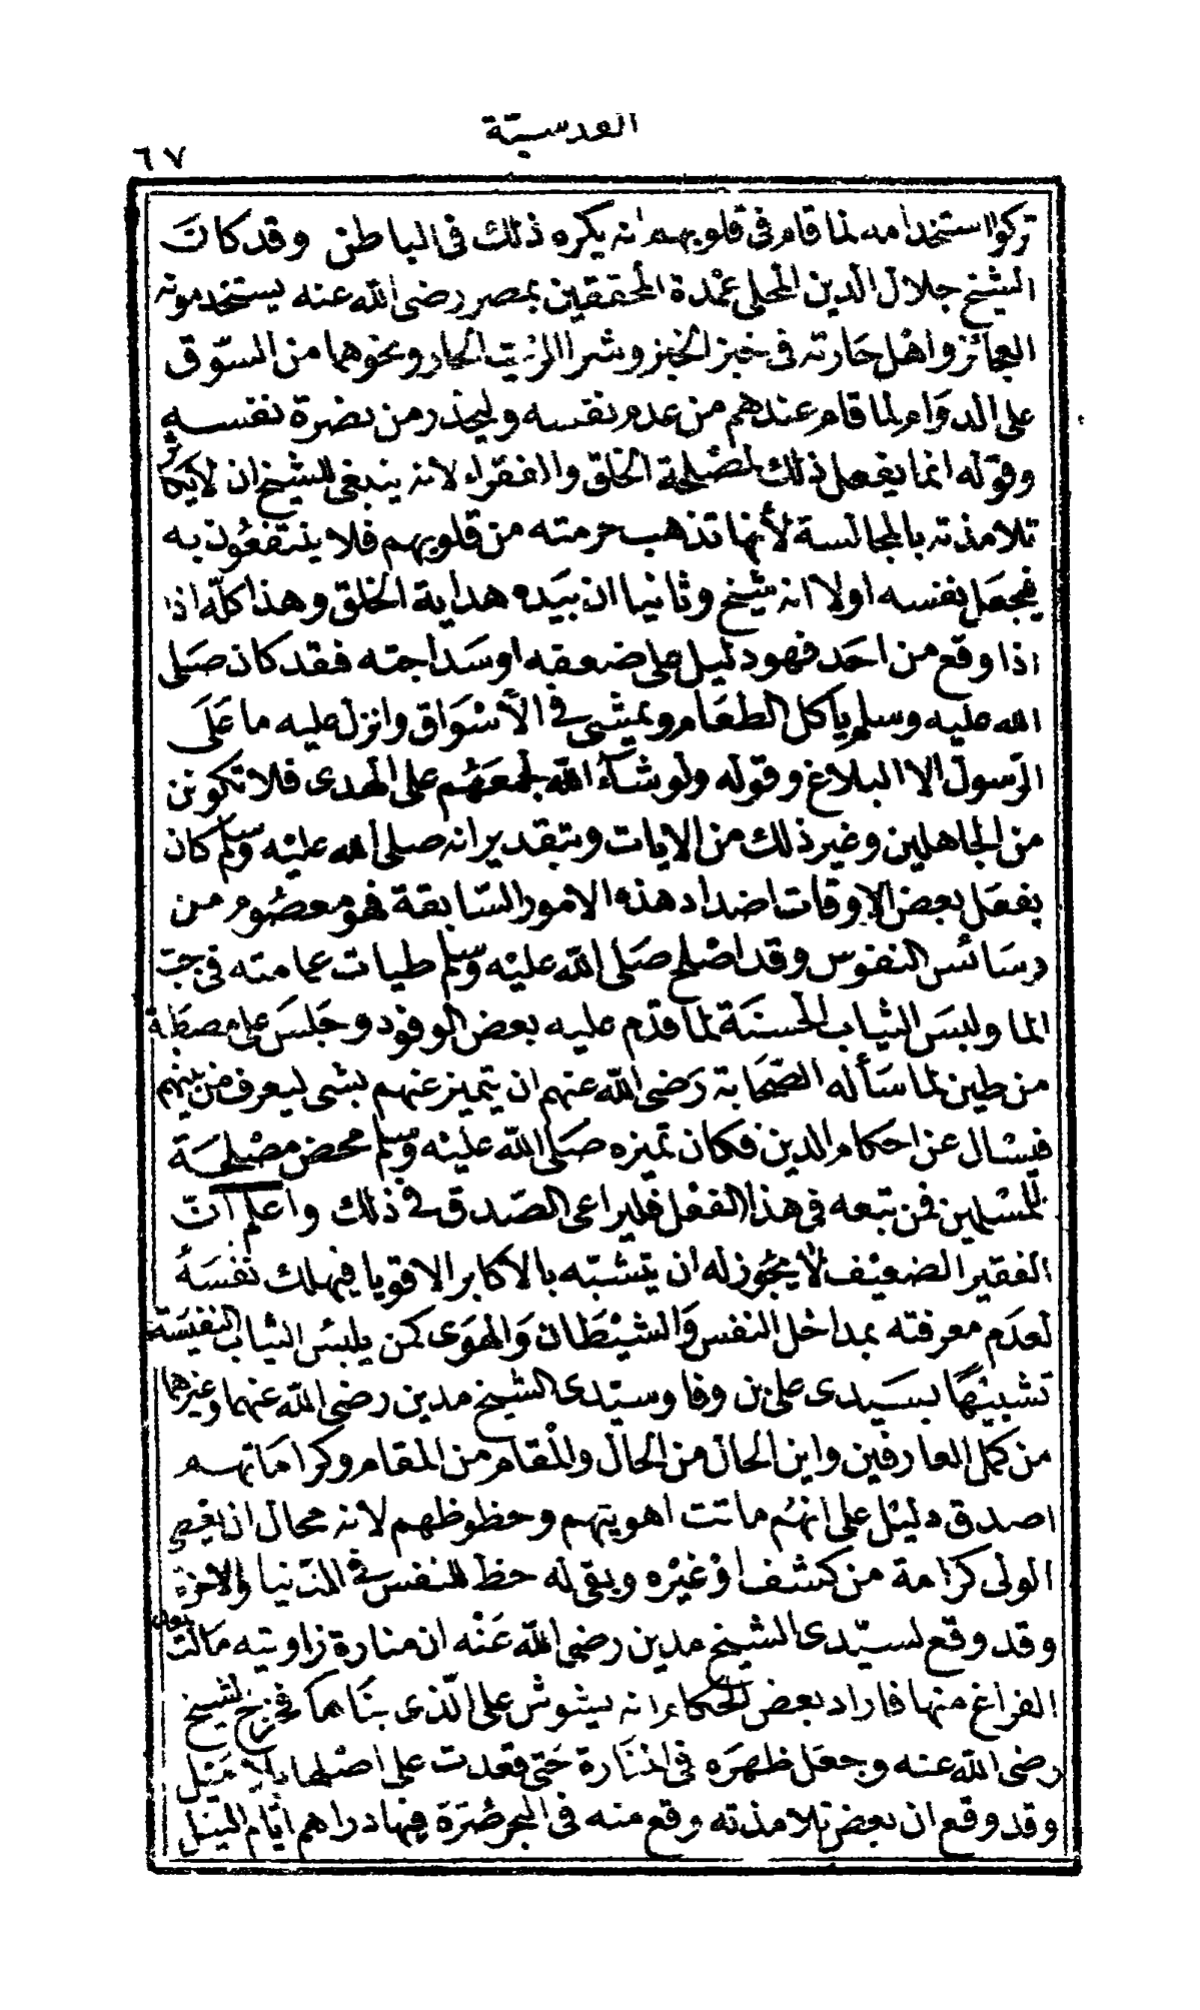 القدسية
٦٧
تركوا استخدامه لما قام فى قلوبهم انه يكره ذلك فى الباطن وقد كان
الشيخ جلال الدين المحلى عمدة المحققين بمصر رضى الله عنه يستخدمونه
العجائز واهل حارته فى خبز الخبز وشرا الزيت الحار ونحوهما من السوق
على الدوام لما قام عندهم من عدم نفسه وليحذر من نصرة نفسه
وقوله انما يفعل ذلك لمصلحة الخلق والفقراء لانه ينبغى للشيخ ان لا يكاثر
تلامذته بالمجالسة لأنها تذهب حرمته من قلوبهم فلا ينتفعون به
فيجعل نفسه اولا انه شيخ وثانيا ان بيده هداية الخلق وهذا كله اذا
اذا وقع من احد فهو دليل على ضعفه او سداجته فقد كان صلى
الله عليه وسلم ياكل الطعام ويمشى فى الأسواق وانزل عليه ما على
الرسول الا البلاغ وقوله ولو شآء الله لجمعهم على الهدى فلا تكونن
من الجاهلين وغير ذلك من الايات وبتقدير انه صلى الله عليه وسلم كان
يفعل بعض الاوقات اضداد هذه الامور السابقة فهو معصوم من
دسائس النفوس وقد اصلح صلى الله عليه وسلم طيات عمامته فى حب
الما ولبس الثياب الحسنة لما قدم عليه بعض الوفود وجلس على مصطبة
من طين لما سأله الصحابة رضى الله عنهم ان يتميز عنهم بشى ليعرف من بينهم
فيسال عن احكام الدين فكان تميزه صلى الله عليه وسلم محض مصلحة
للمسلمين فمن تبعه فى هذا الفعل فليراعى الصدق فى ذلك واعلم ان
الفقير الضعيف لا يجوز له ان يتشبه بالاكابر الاقويا فيهلك نفسه
لعدم معرفته بمداخل النفس والشيطان والهوى كمن يلبس الثياب النفيسة
تشبيها بسيدى على بن وفا وسيدى الشيخ مدين رضى الله عنهما وغيرهما
من كمل العارفين واين الحال من الحال والمقام من المقام وكراماتهم
اصدق دليل على انهم ماتت اهويتهم وحظوظهم لانه محال ان يعطى
الولى كرامة من كشف او غيره وبقى له حظ للنفس فى الدنيا والاخرة
وقد وقع لسيدى الشيخ مدين رضى الله عنه ان منارة زاويته مالت بعد
الفراغ منها فاراد بعض الحكام انه يشوش على الذى بناها فخرج الشيخ
رضى الله عنه وجعل ظهره فى المنارة حتى قعدت على اصلها بلا ميل
وقد وقع ان بعض تلامذته وقع منه فى البحر صرة فيها دراهم ايام النيل